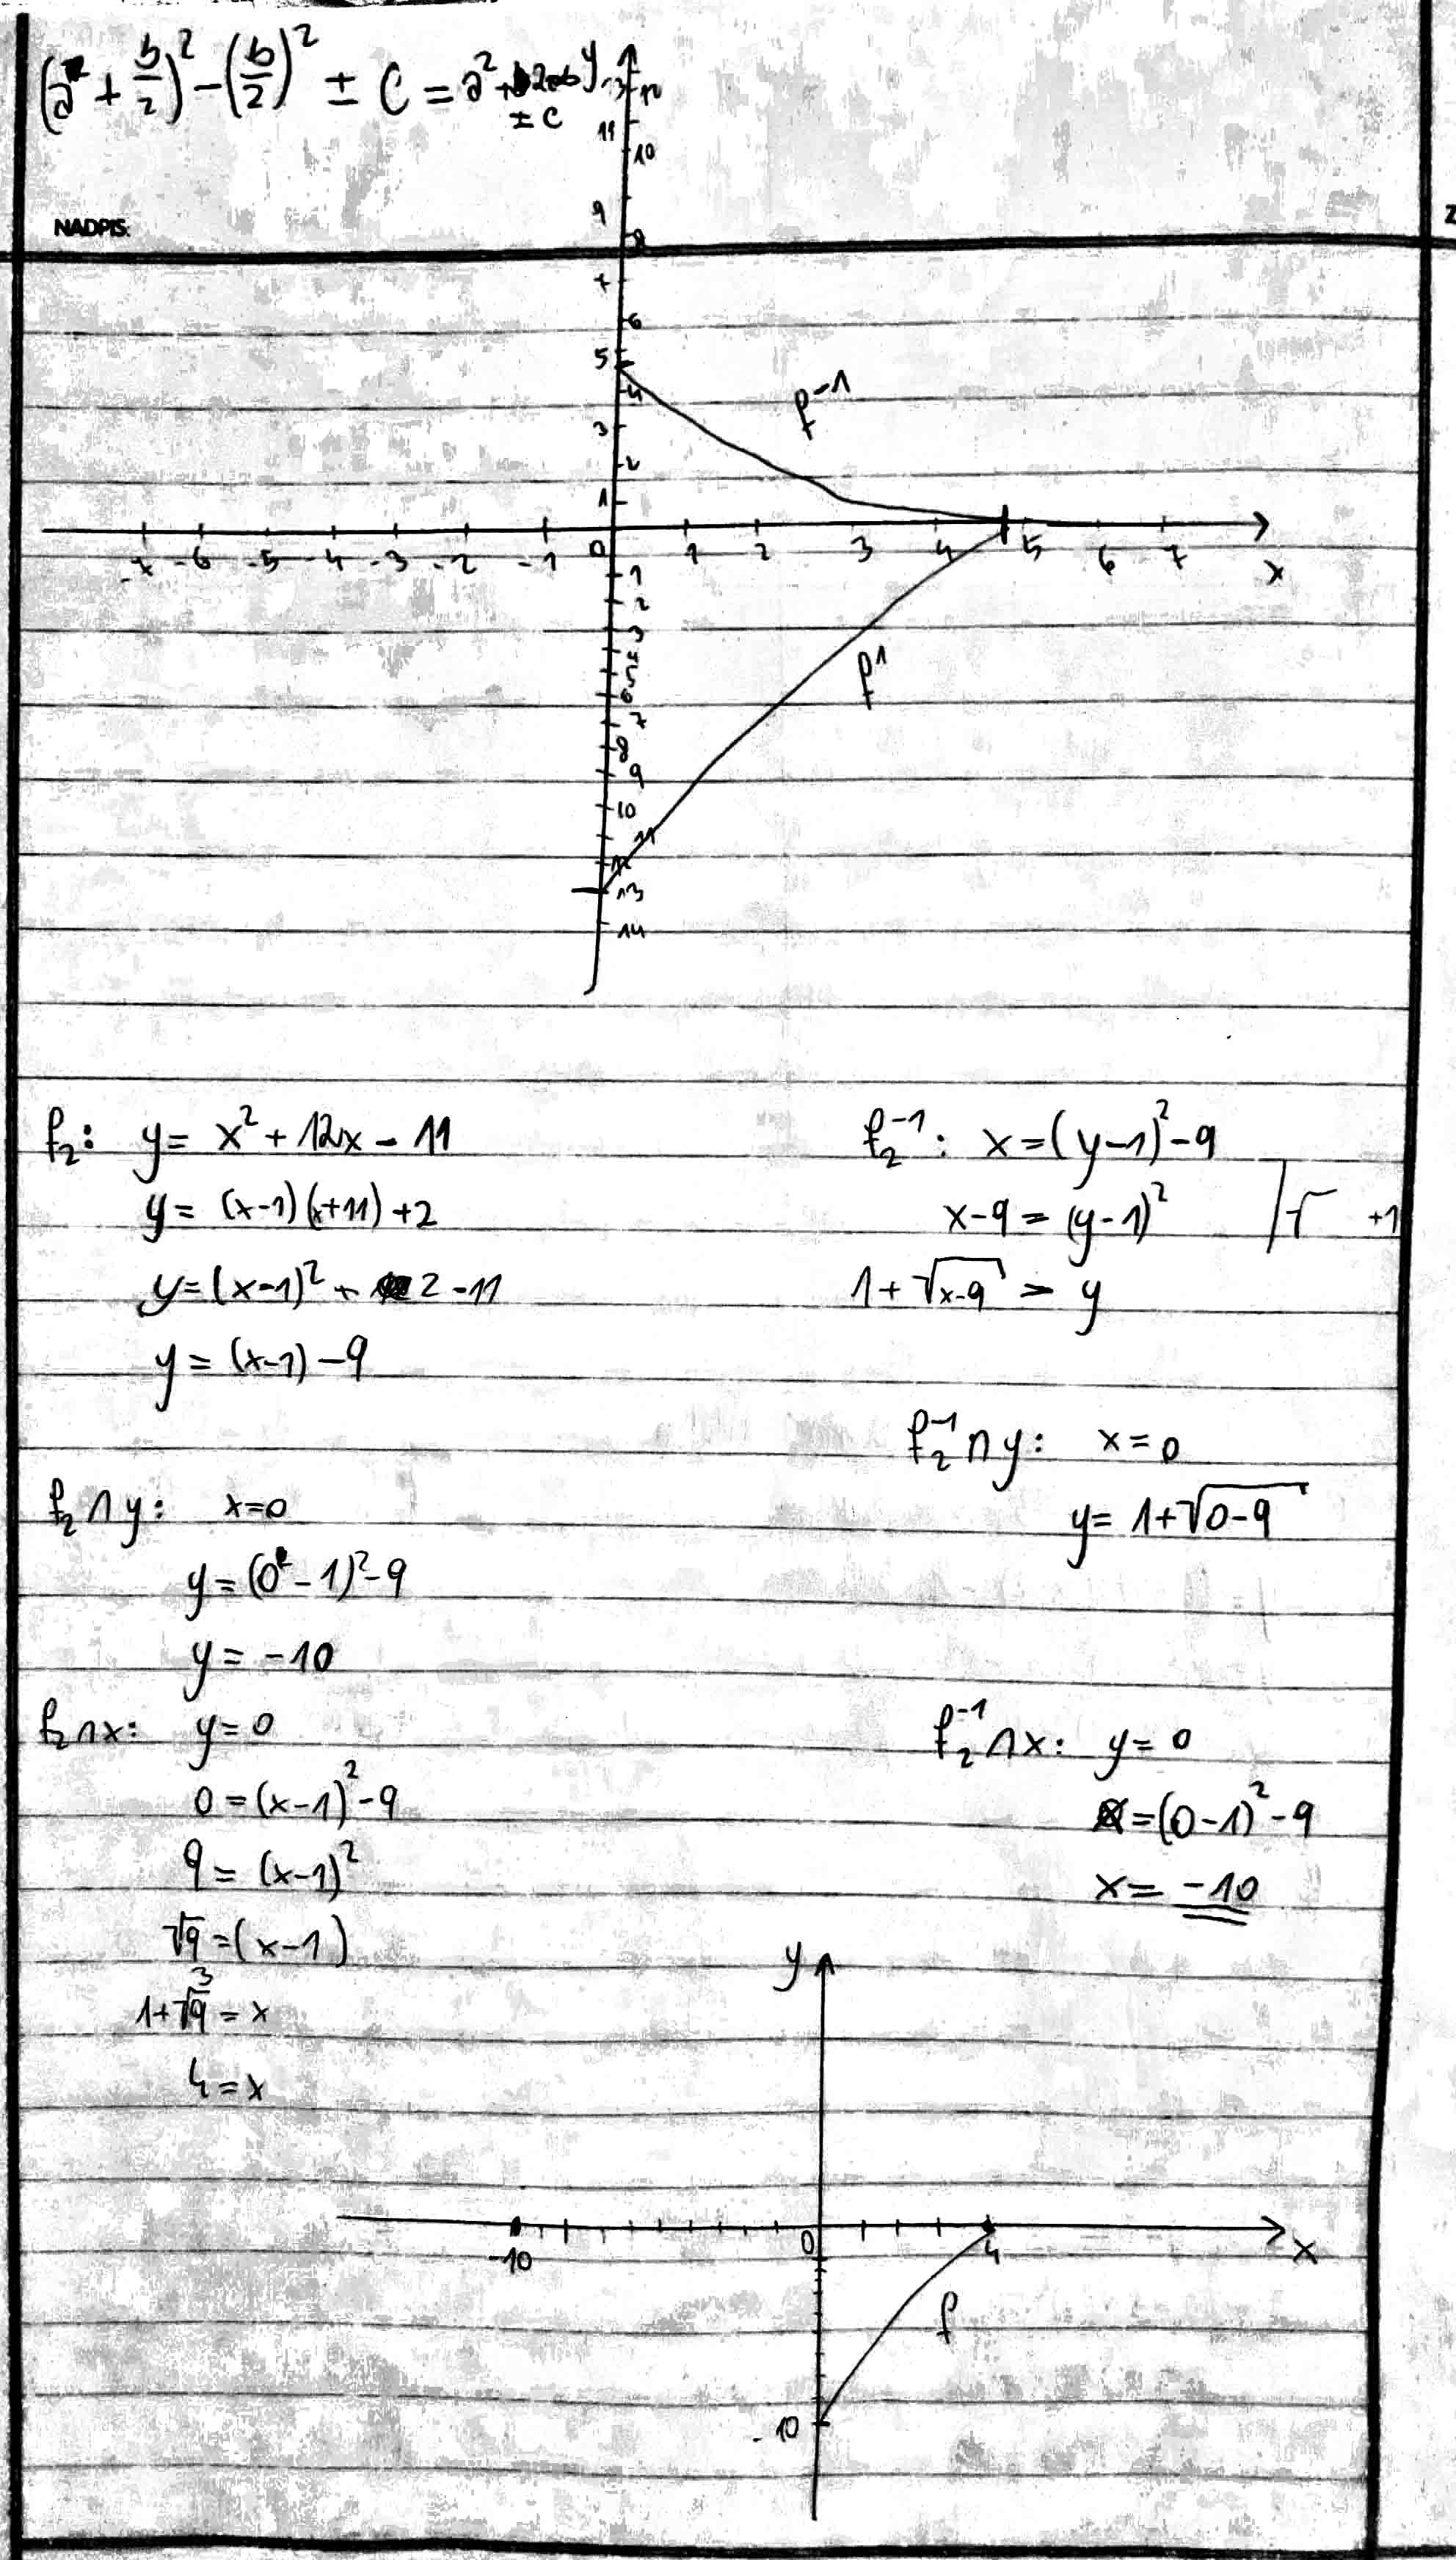 (a + b/2)² - (b/2)² ± C = a² + 2ab
± C
y
13 12
11
10
9
8
NADPIS:
7
6
5
4
3
2
1
f⁻¹
-7 -6 -5 -4 -3 -2 -1 0 1 2 3 4 5 6 7
x
1
2
3
4
5
6
7
8
9
10
11
12
13
14
f¹
f₂: y = x² + 12x - 11
y = (x-1)(x+11) + 2
y = (x-1)² + 2 - 11
y = (x-1) - 9
f₂⁻¹: x = (y-1)² - 9
x - 9 = (y-1)² /√ +1
1 + √x-9 = y
f₂⁻¹ ∩ y: x = 0
y = 1 + √0-9
f₂ ∩ y: x=0
y = (0 - 1)² - 9
y = -10
f₂ ∩ x: y = 0
0 = (x-1)² - 9
9 = (x-1)²
√9 = (x-1)
3
1 + √9 = x
4 = x
f₂⁻¹ ∩ x: y = 0
= (0-1)² - 9
x = -10
y
-10 0 4 x
f
-10